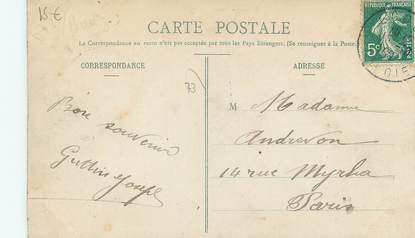 15 €
CARTE POSTALE
La Correspondance au recto n'est pas acceptée par tous les Pays Etrangers. (Se renseigner à la Poste
CORRESPONDANCE
ADRESSE
RÉPUBLIQUE FRANÇAISE
5c
POSTES
73
Bon souvenir
Joseph
M Madame
Andrevon
14 rue Myrha
Paris